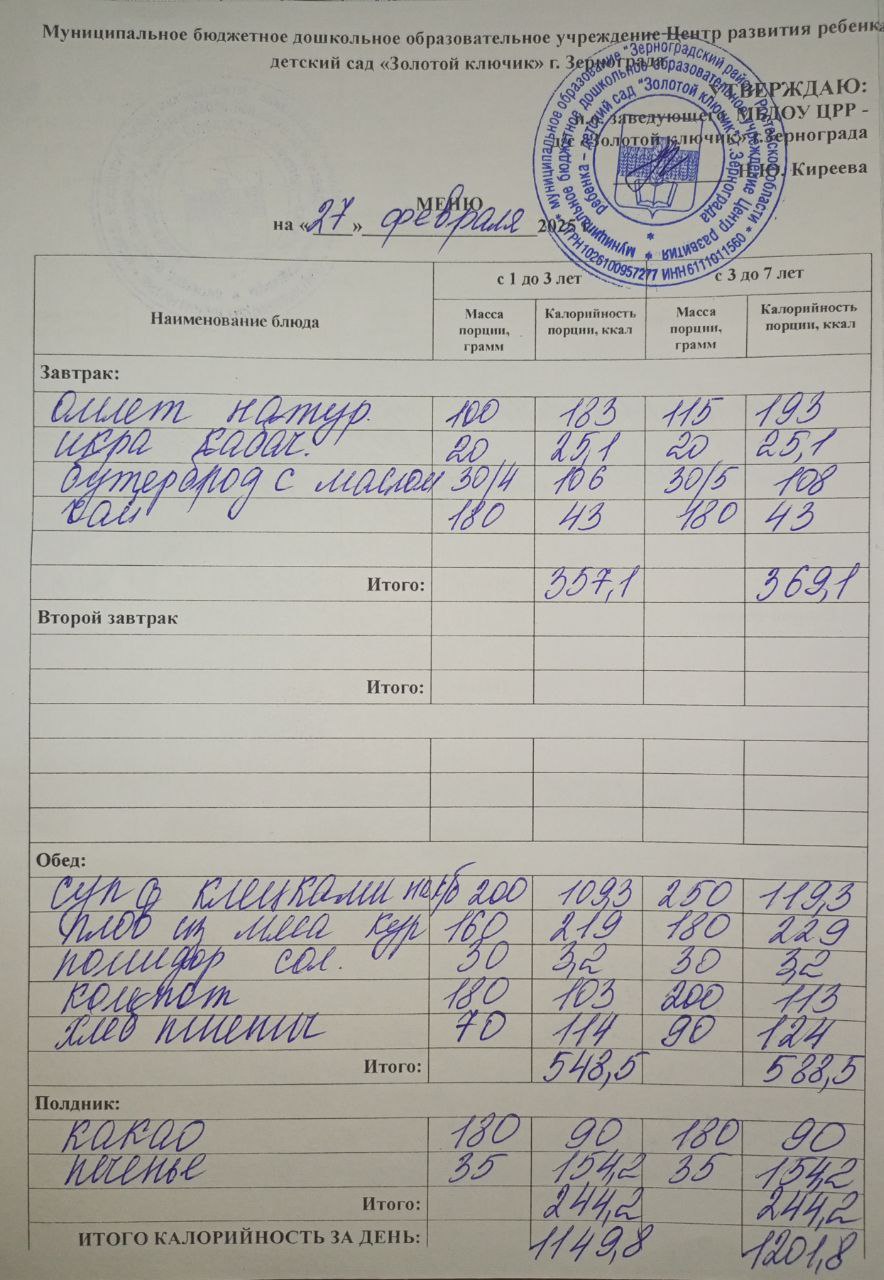 Муниципальное бюджетное дошкольное образовательное учреждение Центр развития ребенка
детский сад «Золотой ключик» г. Зернограда
УТВЕРЖДАЮ:
и.о. заведующего МБДОУ ЦРР -
д/с «Золотой ключик» г.Зернограда
Н.Ю. Киреева
* муниципальное образование "Зерноградский район" Ростовской области * ОГРН 1026100957277 ИНН 6111011560
муниципальное бюджетное дошкольное образовательное учреждение Центр развития
ребенка – детский сад "Золотой ключик" г. Зернограда
МЕНЮ
на «27» февраля 2025 г.
Наименование блюда с 1 до 3 лет с 3 до 7 лет
Масса порции, грамм Калорийность порции, ккал Масса порции, грамм Калорийность порции, ккал
Завтрак:
омлет натур. 100 183 115 193
икра кабач. 20 25,1 20 25,1
бутерброд с маслом 30/4 106 30/5 108
чай 180 43 180 43
Итого: 357,1 369,1
Второй завтрак
Итого:
Обед:
суп с клецками на к/б 200 109,3 250 119,3
плов из мяса кур 160 219 180 229
помидор сол. 30 3,2 30 3,2
компот 180 103 200 113
хлеб пшенич 70 114 90 124
Итого: 548,5 588,5
Полдник:
какао 180 90 180 90
печенье 35 154,2 35 154,2
Итого: 244,2 244,2
ИТОГО КАЛОРИЙНОСТЬ ЗА ДЕНЬ: 1149,8 1201,8